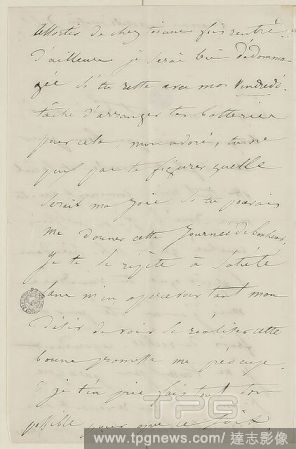 de chez
d'ailleurs je serai bien dédomma-
gée si tu reste avec moi Vendredi
tâche d'arranger tes batteries
pour cela, mon adoré, tu ne
peux pas te figurer quelle
serait ma joie si tu pouvais
me donner cette journée de bonheur
Je te le répète à satiété
sans m'en apercevoir tant mon
désir de voir se réaliser cette
bonne promesse me préoccupe
je t'en prie fais tout ton
possible pour que ce soit
TPG
www.tpgnews.com / 達志影像